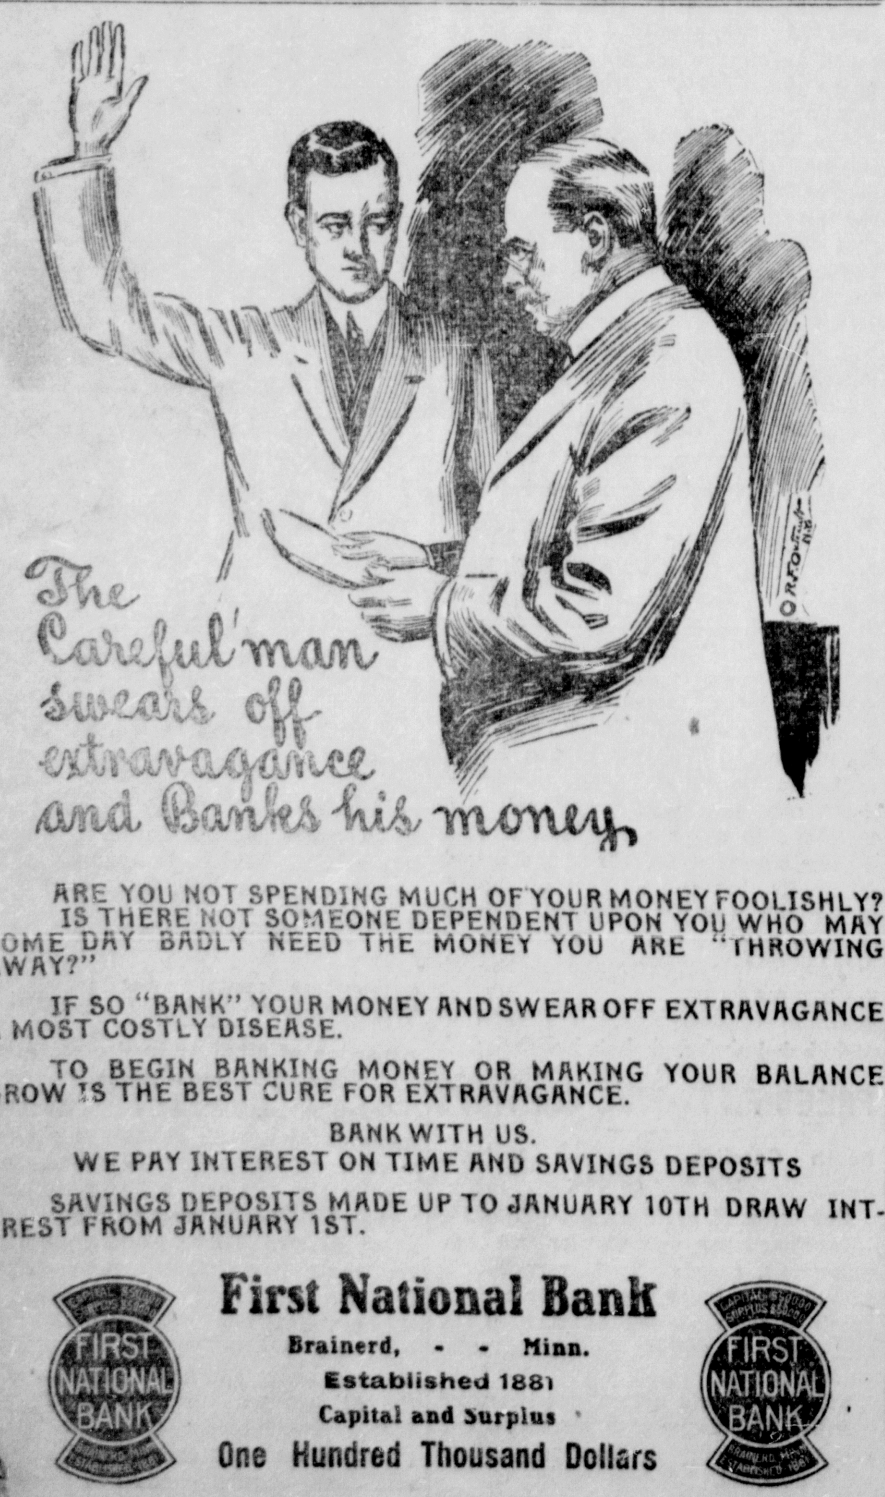 The
Careful man
swears off
extravagance
and Banks his money,
ARE YOU NOT SPENDING MUCH OF YOUR MONEY FOOLISHLY?
IS THERE NOT SOMEONE DEPENDENT UPON YOU WHO MAY
OME DAY BADLY NEED THE MONEY YOU ARE "THROWING
WAY?"
IF SO "BANK" YOUR MONEY AND SWEAR OFF EXTRAVAGANCE
MOST COSTLY DISEASE.
TO BEGIN BANKING MONEY OR MAKING YOUR BALANCE
ROW IS THE BEST CURE FOR EXTRAVAGANCE.
BANK WITH US.
WE PAY INTEREST ON TIME AND SAVINGS DEPOSITS
SAVINGS DEPOSITS MADE UP TO JANUARY 10TH DRAW INT-
REST FROM JANUARY 1ST.
First National Bank
Brainerd, - - Minn.
Established 1881
Capital and Surplus
One Hundred Thousand Dollars
FIRST
NATIONAL
BANK
CAPITAL $50000
SURPLUS
FIRST
NATIONAL
BANK
BRAINERD, MINN.
ESTABLISHED 1881